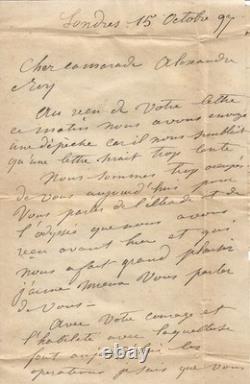 Londres 15 Octobre 97
Cher camarade Alexandre
Au reçu de votre lettre
ce matin nous avons envoyé
une dépêche car il nous semblait
qu'une lettre serait trop lente
Nous sommes trop occupés
de vous aujourd'hui pour
vous parler de et de
que nous avons
reçu avant hier et qui
nous a fait grand plaisir
j'aime mieux vous parler
de vous —
Avec votre courage et
l'habileté avec laquelle se
font les
opérations je sais que vous